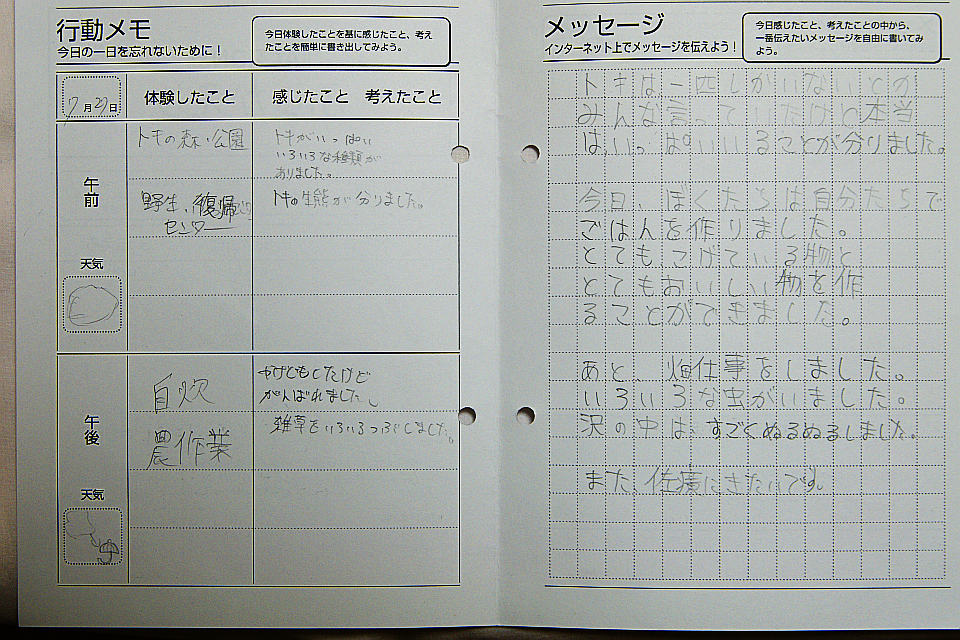 行動メモ
今日の一日を忘れないために！
今日体験したことを基に感じたこと、考え
たことを簡単に書き出してみよう。
7月27日
体験したこと
感じたこと 考えたこと
午前
トキの森・公園
トキがいっぱい
いろいろな種類が
ありました。
野生復帰
センター
トキの生態が分りました。
天気
午後
自炊
やけどもしたけど
がんばれました。
農作業
雑草をいろいろつぶしました。
天気
メッセージ
インターネット上でメッセージを伝えよう！
今日感じたこと、考えたことの中から、
一番伝えたいメッセージを自由に書いてみ
よう。
トキは一匹しかいないとか
みんな言っていたけど本当
は、いっぱいいることが分りました。
今日、ぼくたちは自分たちで
ごはんを作りました。
とてもこげている物と
とてもおいしい物を作
ることができました。
あと、畑仕事をしました。
いろいろな虫がいました。
沢の中は、すごくぬるぬるしました。
また、佐渡にきたいです。